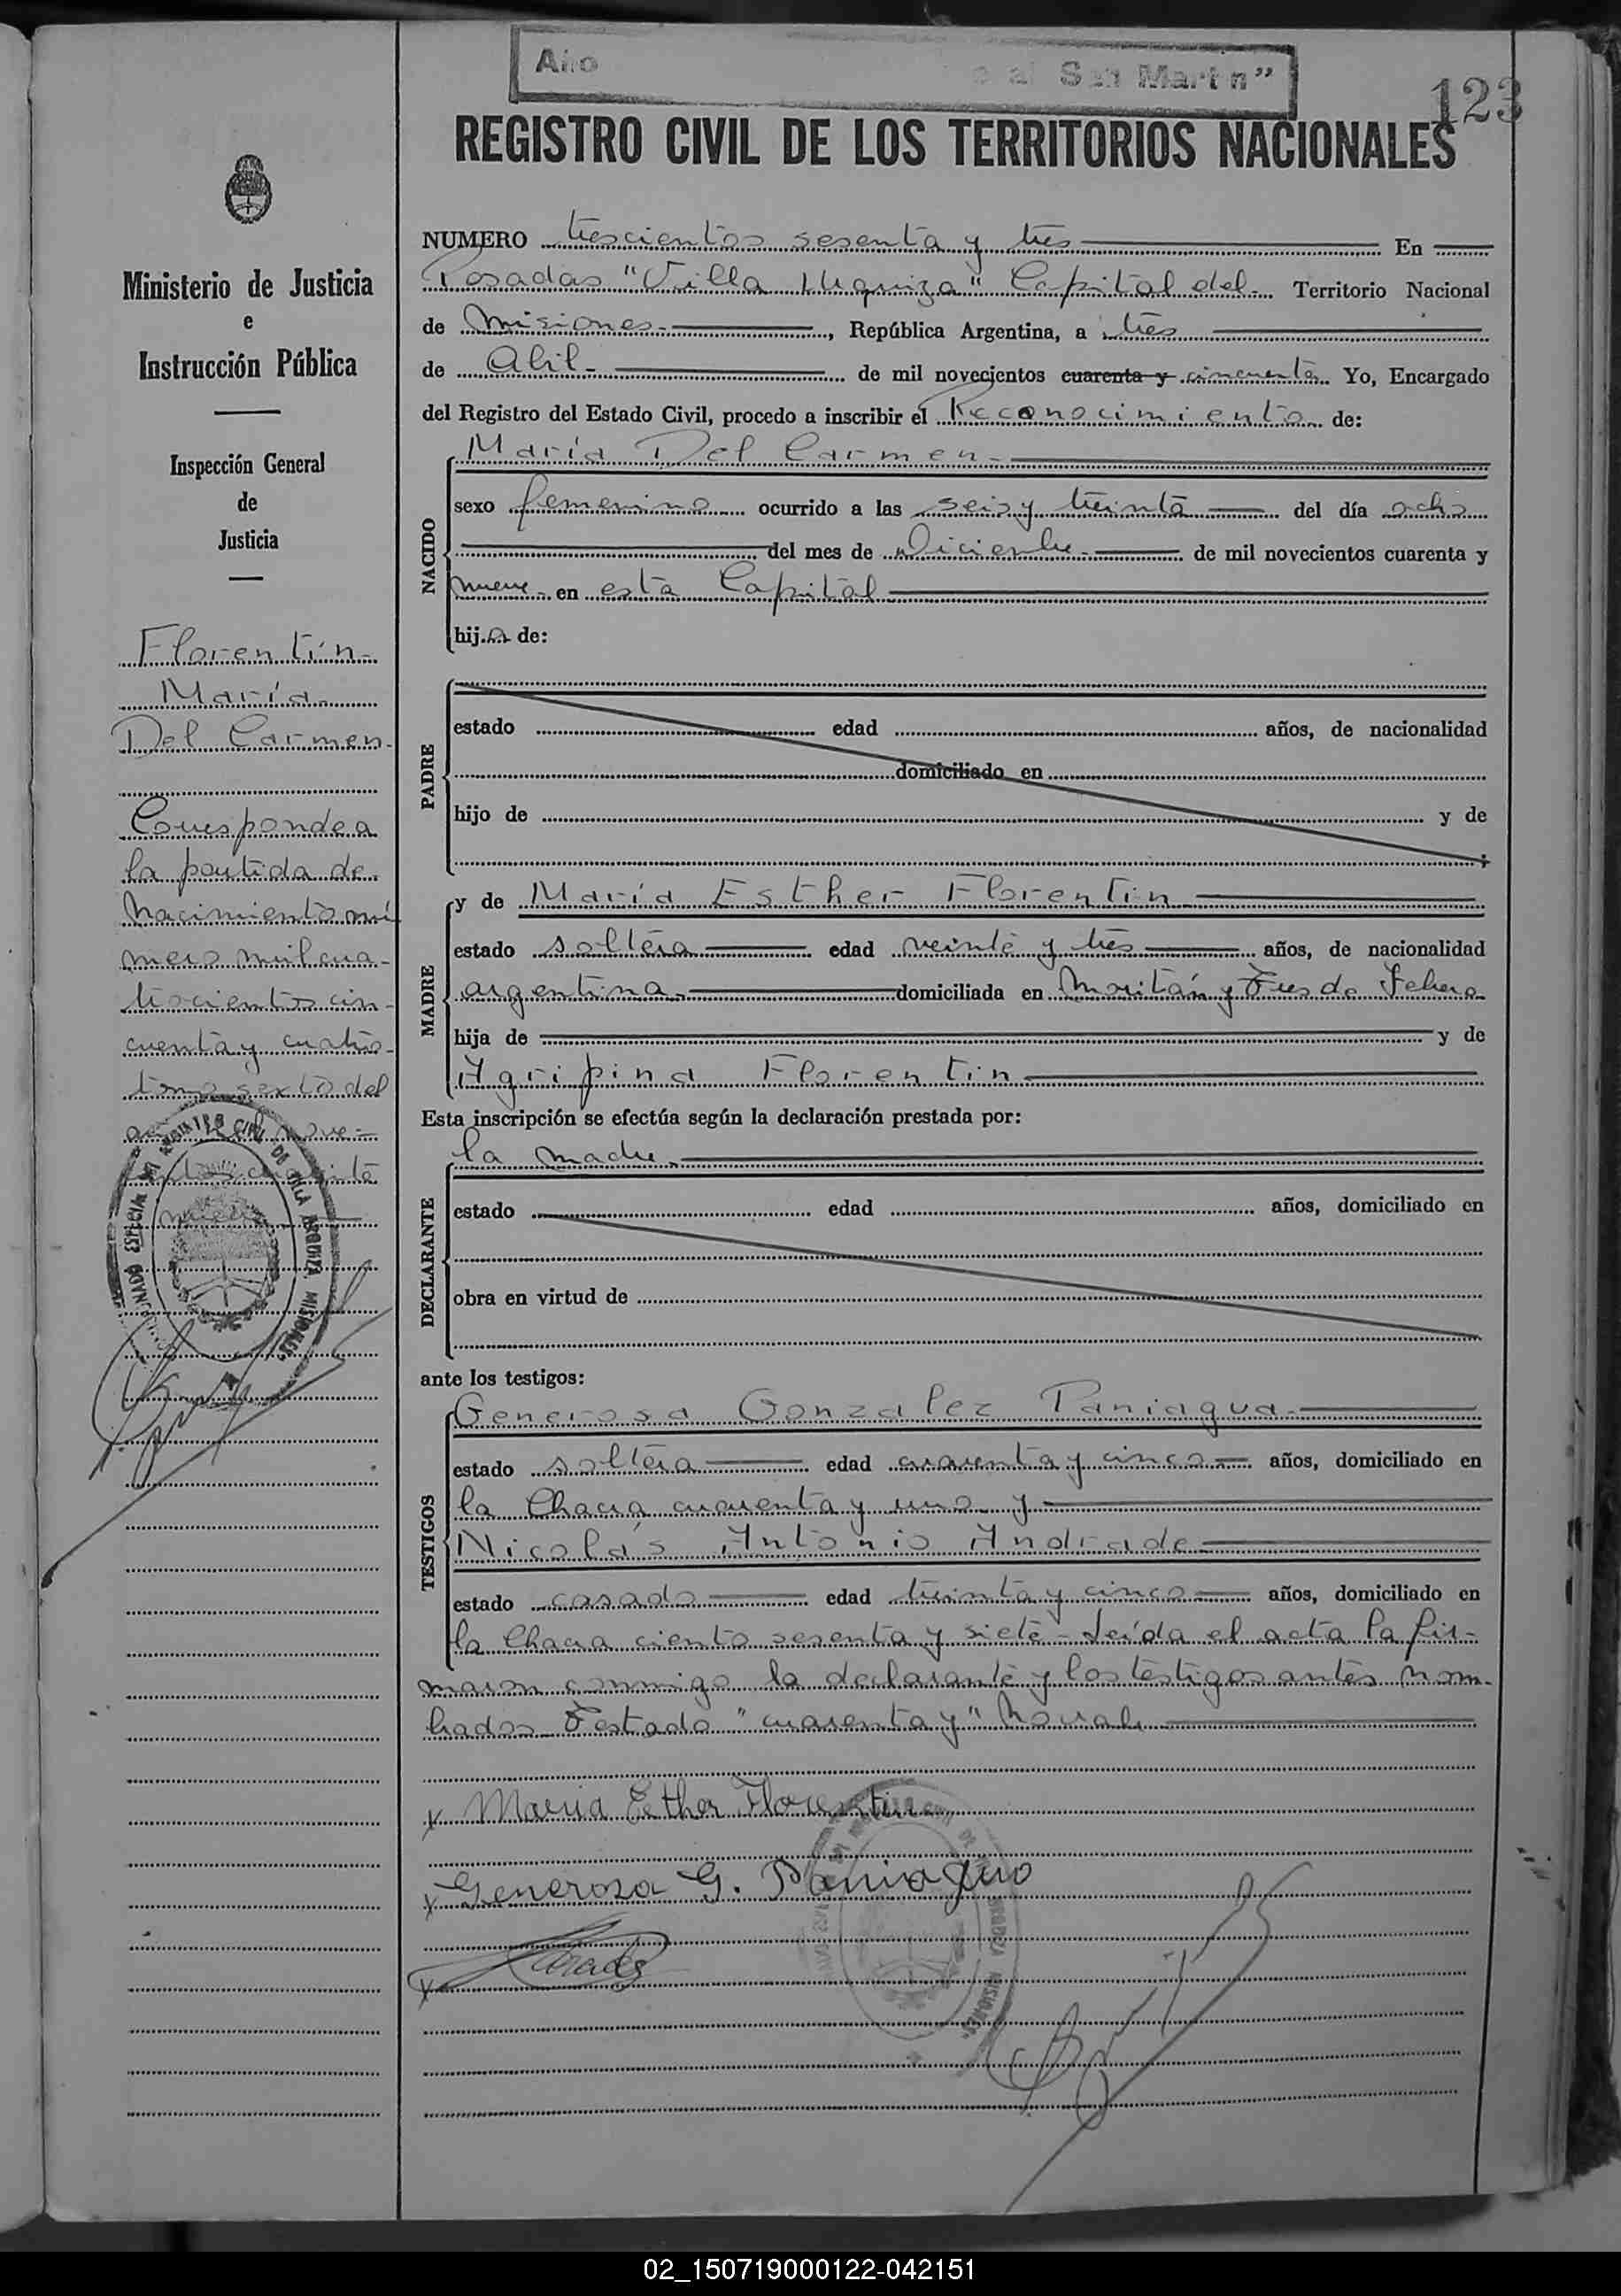 Año al San Martín”
123
REGISTRO CIVIL DE LOS TERRITORIOS NACIONALES
Ministerio de Justicia
e
Instrucción Pública
Inspección General
de
Justicia
Florentín
María
Del Carmen.
Corresponde a
la partida de
Nacimiento nú
mero mil cua-
trocientos cin-
cuenta y cuatro
tomo sexto del
nueve
REGISTRO CIVIL DE VILLA URQUIZA MISIONES
NUMERO trescientos sesenta y tres En
Posadas "Villa Urquiza" Capital del Territorio Nacional
de Misiones, República Argentina, a tres
de Abril de mil novecientos cuarenta y cincuenta Yo, Encargado
del Registro del Estado Civil, procedo a inscribir el Reconocimiento de:
NACIDO
María Del Carmen
sexo femenino ocurrido a las seis y treinta del día ocho
del mes de Diciembre de mil novecientos cuarenta y
nueve en esta Capital
hija de:
PADRE
estado edad años, de nacionalidad
domiciliado en
hijo de y de
MADRE
y de María Esther Florentin
estado soltera edad veinte y tres años, de nacionalidad
argentina domiciliada en y Tres de Febrero
hija de y de
Agripina Florentin
Esta inscripción se efectúa según la declaración prestada por:
DECLARANTE
la madre
estado edad años, domiciliado en
obra en virtud de
ante los testigos:
TESTIGOS
Generosa Gonzalez Paniagua
estado soltera edad cuarenta y cinco años, domiciliado en
la Chacra cuarenta y uno y
Nicolás Antonio Andrade
estado casado edad treinta y cinco años, domiciliado en
la Chacra ciento sesenta y siete - Leída el acta la fir-
maron conmigo la declarante y los testigos antes nom-
brados Testado "cuarenta y" No vale
x Maria Esther Florentin
x Generosa G. Paniagua
x
02_150719000122-042151